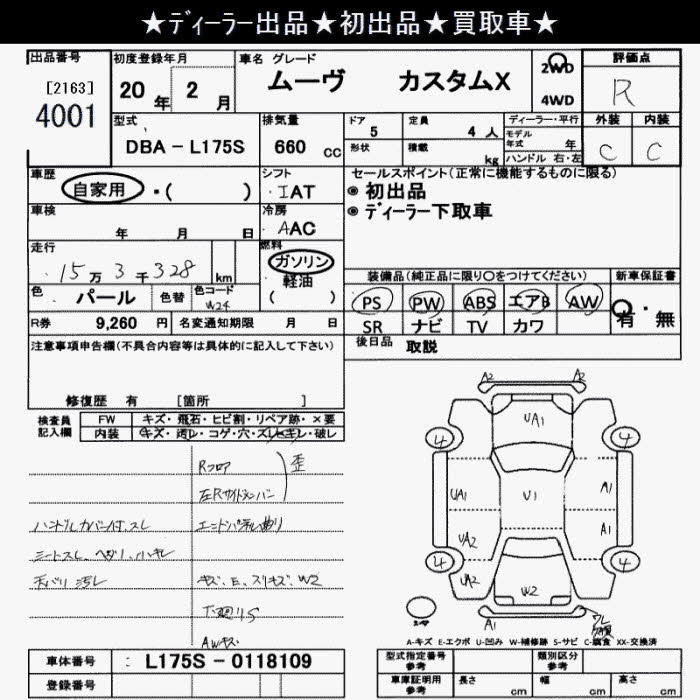 ★ディーラー出品★初出品★買取車★
出品番号
[2163]
4001
初度登録年月
20 年 2 月
車名 グレード
ムーヴ カスタムX
2WD
4WD
評価点
R
外装 内装
C C
型式
DBA - L175S
排気量
660 cc
ドア
5
定員
4 人
形状
積載
kg
ディーラー・平行
モデル年式 年
ハンドル 右・左
車歴
自家用 ・( )
シフト
IAT
セールスポイント(正常に機能するものに限る)
◉ 初出品
◉ ディーラー下取車
車検
年 月 日
冷房
AAC
走行
15万3千328 km
燃料
ガソリン
軽油
( )
色
パール
色替
色コード
W24
装備品(純正品に限り〇をつけてください)
PS PW ABS エアB AW
SR ナビ TV カワ
新車保証書
有・無
R券 9,260 円
名変通知期限 月 日
後日品 取説
注意事項申告欄(不具合内容等は具体的に記入して下さい)
修復歴 有 [箇所 ]
検査員記入欄
FW キズ・飛石・ヒビ割・リペア跡・×要
内装 キズ・汚レ・コゲ・穴・ズレ・キレ・破レ
Rフロア
歪
ハンドルカバー付、スレ
天バリ 汚レ
キズ、E、スリキズ、W2
AWキズ
A2 A2
UA1
4 4
UA1 U1 A1
UA2 A1
4 4
UA2
W2
A1
A-キズ E-エクボ U-凹み W-補修跡 S-サビ C-腐食 XX-交換済
車体番号 : L175S - 0118109
登録番号
型式指定番号 参考
類別区分 参考
車庫証明用 参考
長さ cm
幅 cm
高さ cm